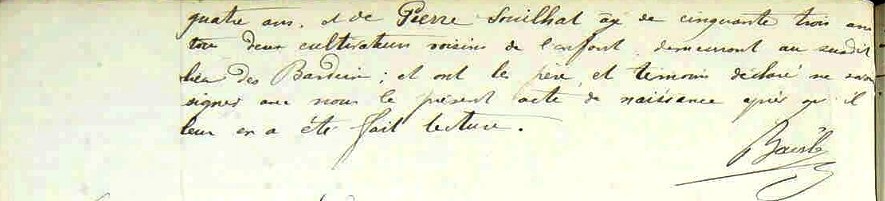 quatre ans, et de Pierre Souilhat âgé de cinquante trois ans
tous deux cultivateurs voisins de l'enfant, demeurant au susdit
lieu des ; et ont les père et témoins déclaré ne savoir
signer avec nous le présent acte de naissance après qu'il
leur en a été fait lecture.